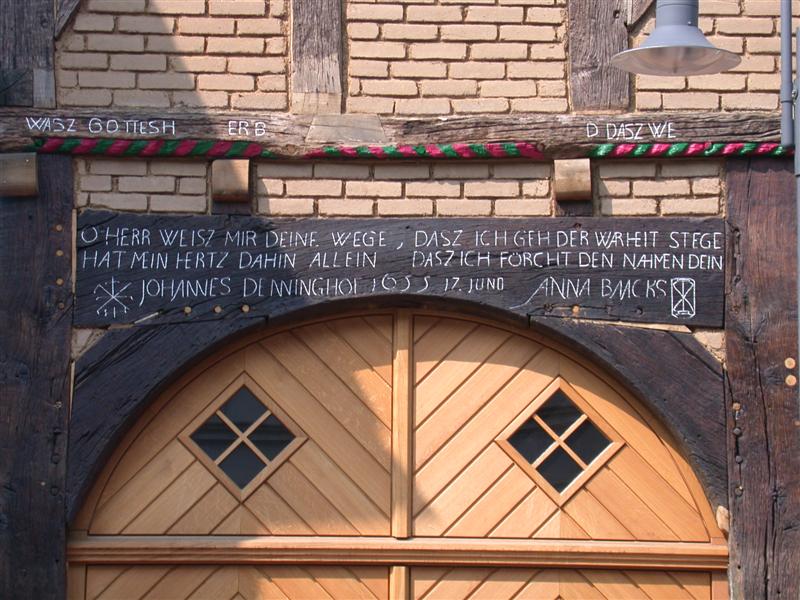 WASZ GOTTESH ERB D DASZ WE
O HERR WEISZ MIR DEINE WEGE, DASZ ICH GEH DER WARHEIT STEGE
HAT MEIN HERTZ DAHIN ALLEIN DASZ ICH FÖRCHT DEN NAHMEN DEIN
JOHANNES DENNINGHOF 1655 17. JUNO ANNA BAACKS